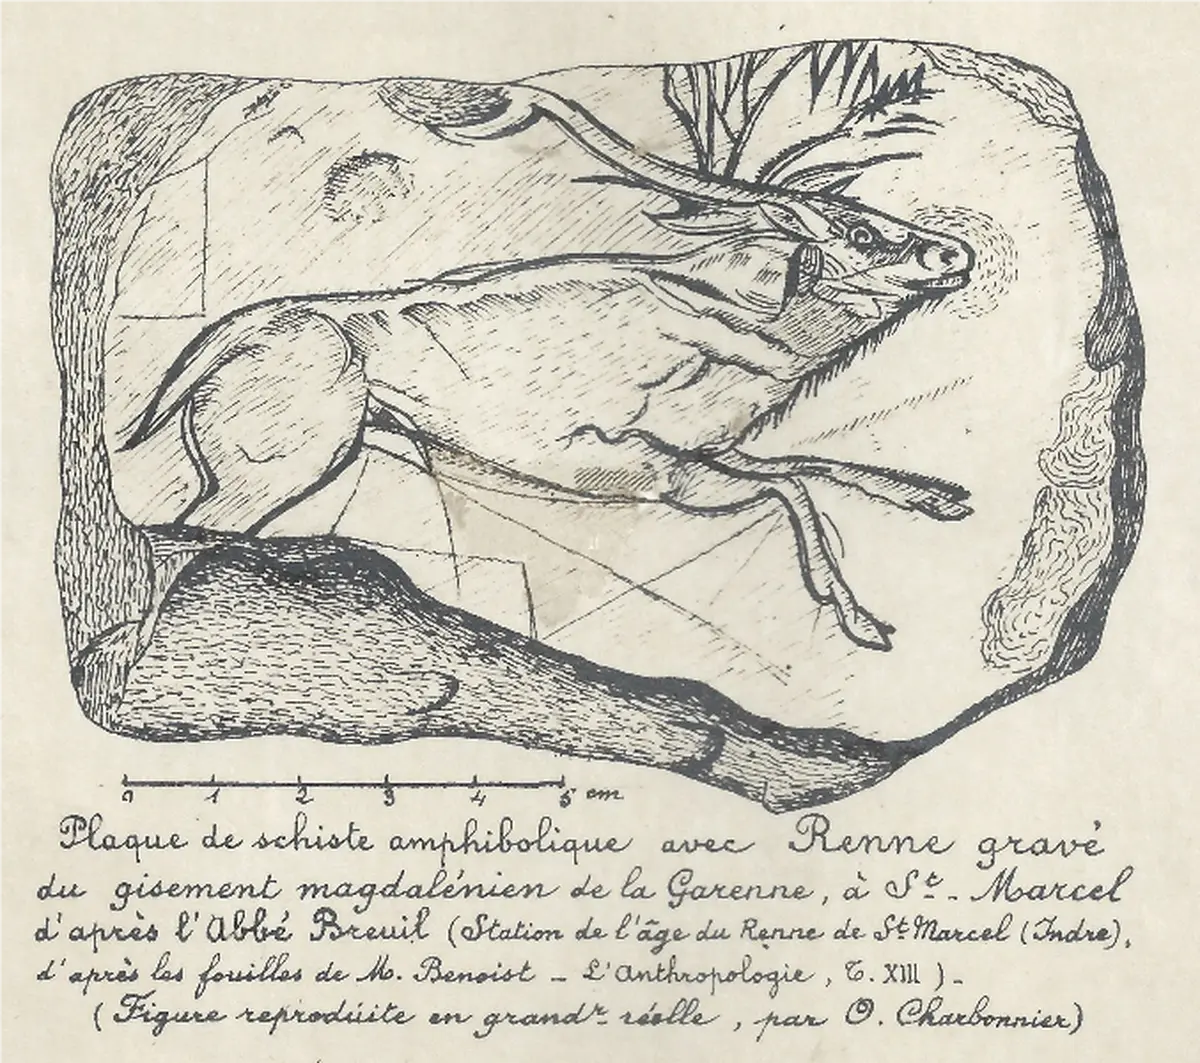 0 1 2 3 4 5 cm
Plaque de schiste amphibolique avec Renne gravé
du gisement magdalénien de la Garenne, à St. Marcel
d'après l'Abbé Breuil (Station de l'âge du Renne de St Marcel (Indre),
d'après les fouilles de M. Benoist - L'Anthropologie, T. XIII). -
(Figure reproduite en grandr réelle, par O. Charbonnier)